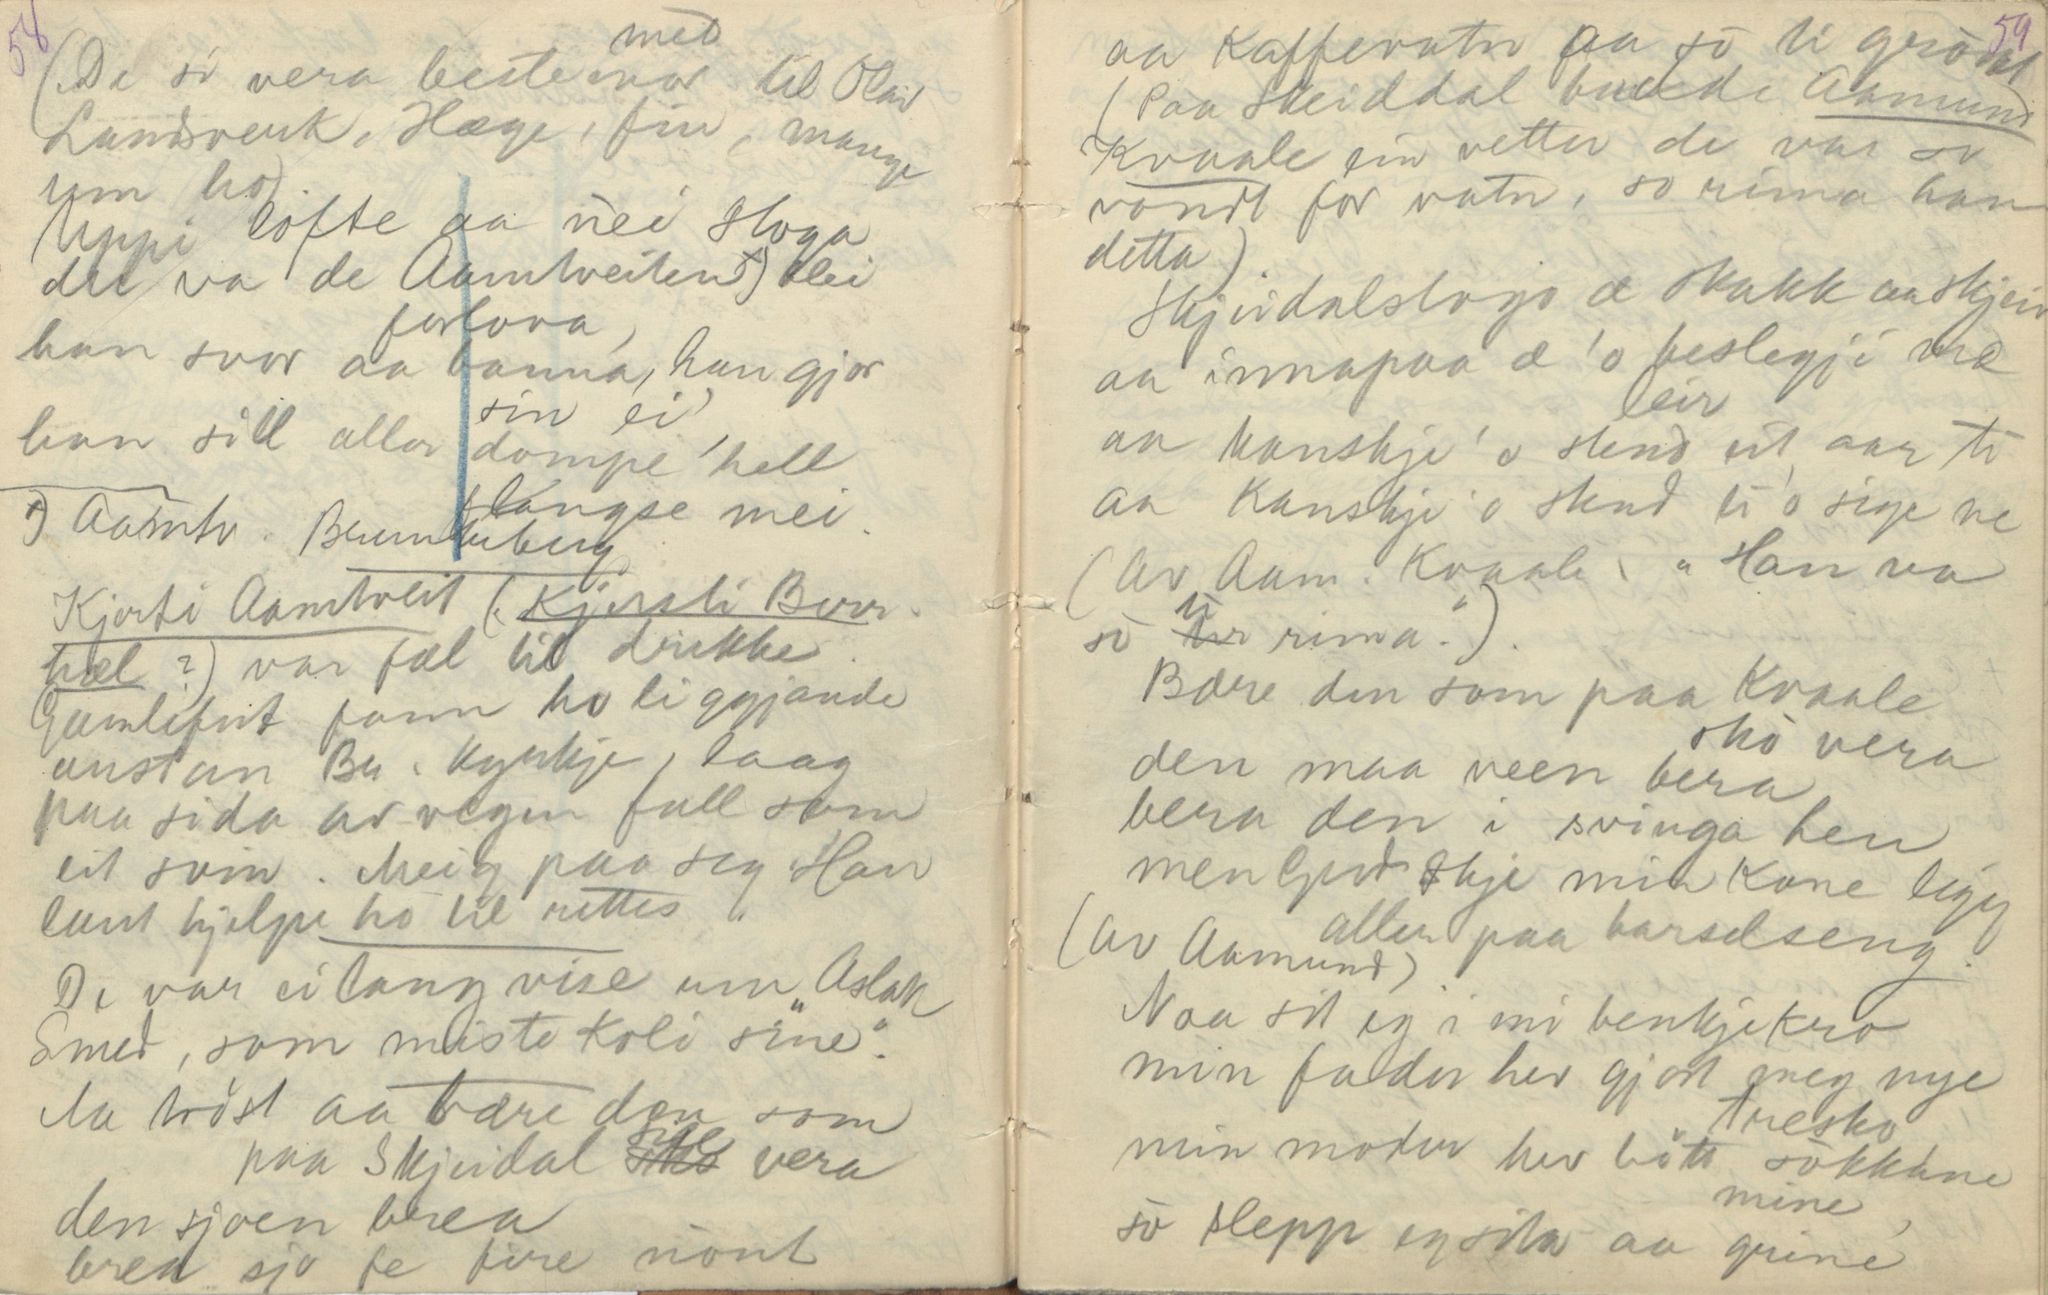 58
(De si vera bestemor til Olav
med
Landsverk, Hæge, fin, mange
um ho).
Uppi lofte aa nei stoga
der va de Aamtveiten*) blei
forlova,
han svor aa banna, han gjor
han sill aller dompe 'hell
sin ei
slangse mei.
*) Aamtv. Brunkeberg
Kjerti Aamtveit (Kjersti Burr-
hæl?) var fæl til drikke.
Gamleprest fann ho liggjande
austan Br. kyrkje, laag
paa sida av vegen full som
eit svin. Meig paa seg. Han
laut hjelpe ho til rettes.
De var ei lang vise um "Aslak
Smed, som miste Koli sine".
Aa trøst aa bære den som
paa Skjeidal skò vera
den sjoen brea
brea sjo fe fire nònt
59
aa Kaffevatn aa sò ti grònat
(Paa Skeiddal budde Aamund
Kvaale ein vetter de var so
vondt for vatn, so rima han
detta)
Skjeidalstogo æ skakk aa skjeiv
aa innapaa æ 'o beslegji mæ
leir
aa kanskje 'o stend eit aar ti
aa kanskje 'o stend ti 'o sige ne
(Av Aam. Kvaale. "Han va
sò ti rima".).
Bære den som paa Kvaale
skò vera
den maa veen bera
bera den i svinga hen
men Gud skje min Kone ligg
aller paa barselseng.
(Av Aamund)
Naa sit eg i mi benkjekro
min fader hev gjort meg nye
tresko
min moder hev bòtt sòkkane
mine,
sò slepp eg sita aa grine